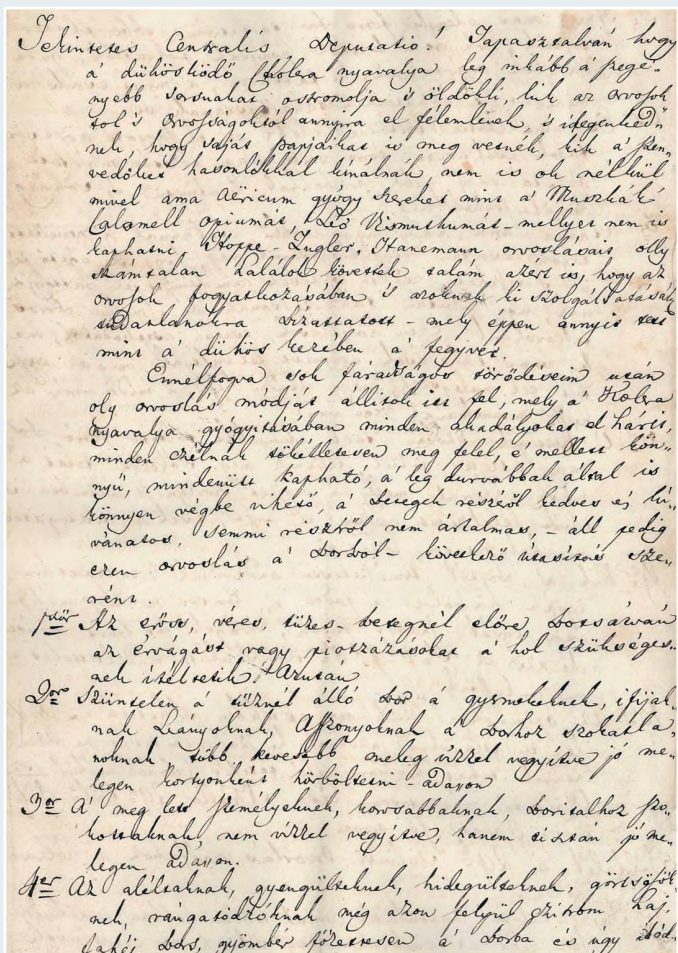 Tekintetes Centralis Deputatio! Tapasztalván hogy
á dühösködő Cholera nyavalya leg inkább á szege-
nyebb sorsuakat ostromolja 's öldökli, kik az orvosok
tol 's orvosságoktól annyira el félemlének, 's idegenked-
nek, hogy saját papjaikat is meg vetnék, kik á szen-
vedőket hasonlókkal kinálnák, nem is ok nélkül
mivel ama gyógy szereket mint á Muszkák
Calomell opiumát, Léo Vismuthumát – mellyet nem is
kaphatni Hoppe – Hanemann orvoslásait olly
számtalan halálok követték talám azért is, hogy az
orvosok fogyatkozásában 's azoknak ki szolgáltatásaik
tudatlanokra bizattatott – mely éppen annyit tess
mint á dühös kezében á fegyver.
Ennélfogva sok fáradságos törődéseim után
oly orvoslás módját állitok itt fel, mely á Kolera
nyavalya gyógyitásában minden akadályokat el hárit,
minden czélnak tökélletesen meg felel, é mellett kön-
nyű, mindenütt kapható, á leg durvábbak által is
könnyen végbe vihető, á betegek részéről kedves és ki-
vánatos, semmi részről nem ártalmas, – áll pedig
ezen orvoslás á borból – következő utasitás sze-
rént.
1ször Az erőss, véres, tüzes – betegnél előre bocsátván
az érvágást vagy pióczázásokat á hol szükséges-
nek itéltetik. Azután
2or Szüntelen á tüznél álló bor á gyermekeknek, ifijak-
nak Leányoknak, Asszonyoknak á borhoz szokatla-
noknak több kevesebb meleg vizzel vegyitve jó me-
legen kortyonként hörböltetni – adasson
3or Á meg lett személyeknek, korosabbaknak, boritalhoz szo-
kottaknak nem vizzel vegyitve, hanem tisztán jó me-
legen adasson.
4er Az aléltaknak, gyengülteknek, hidegülteknek, görtsösök
nek, rángatódzóknak még azon felyül czitrom haj,
fahéj bors, gyömbér főzettesen á borba és úgy